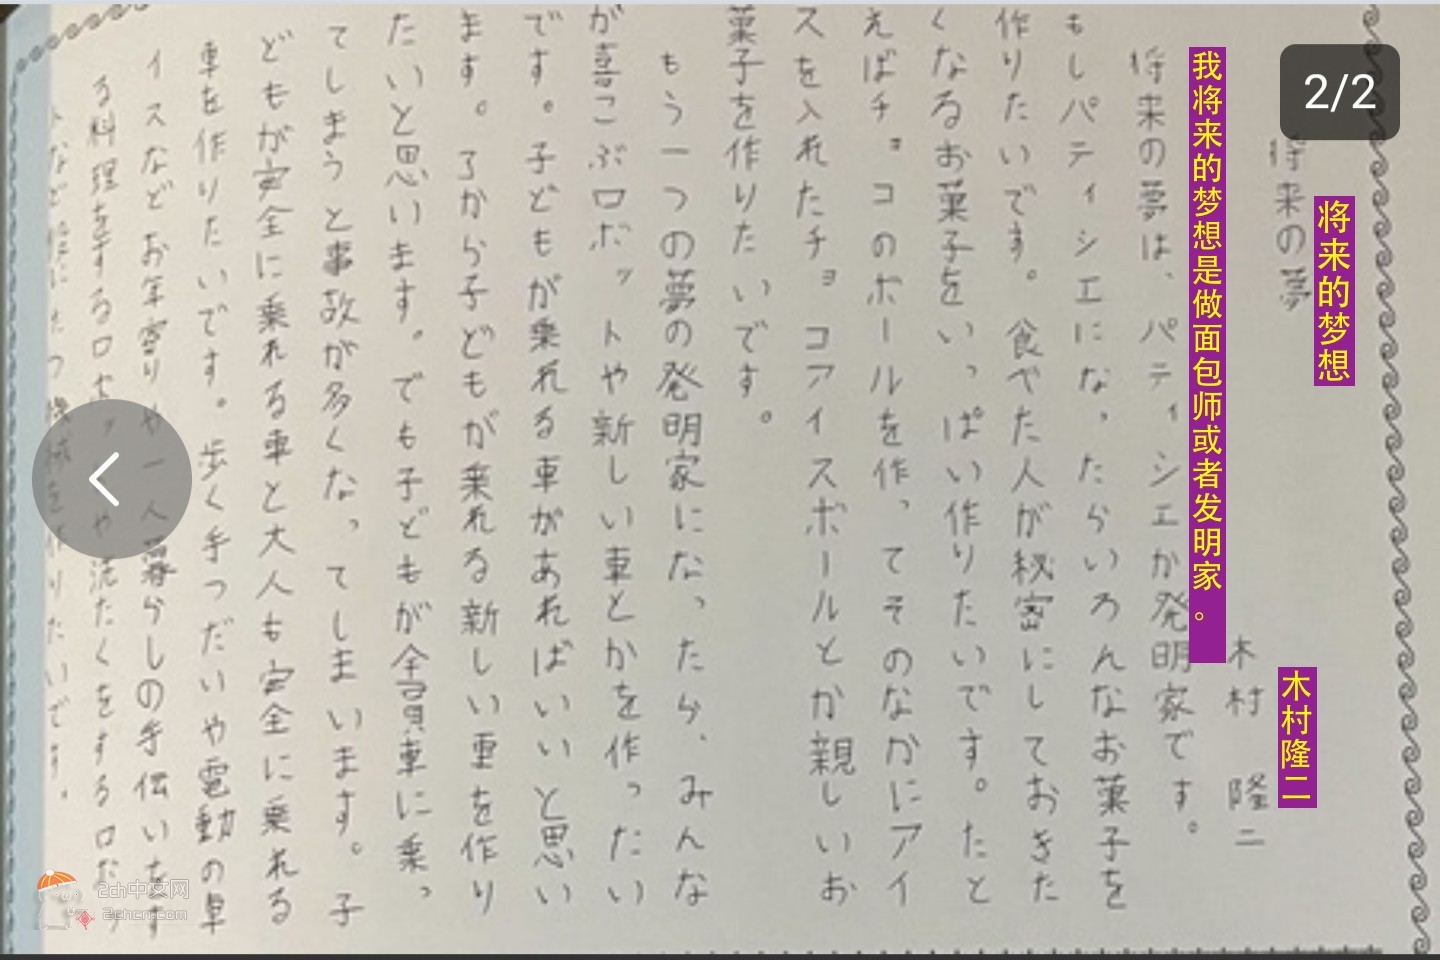 2/2
将来の夢
将来的梦想
木村 隆二
木村隆二
我将来的梦想是做面包师或者发明家。
将来の夢は、パティシエか発明家です。
もしパティシエになったらいろんなお菓子を
作りたいです。食べた人が秘密にしておきた
くなるお菓子をいっぱい作りたいです。たと
えばチョコのボールを作ってそのなかにアイ
スを入れたチョコアイスボールとか親しいお
菓子を作りたいです。
もう一つの夢の発明家になったら、みんな
が喜こぶロボットや新しい車とかを作ったい
です。子どもが乗れる車があればいいと思い
ます。だから子どもが乗れる新しい車を作り
たいと思います。でも子どもが全員車に乗っ
てしまうと事故が多くなってしまいます。子
どもが安全に乗れる車と大人も安全に乗れる
車を作りたいです。歩く手つだいや電動の車
イスなどお年寄りや一人暮らしの手伝いをす
る料理をするロボットや洗たくをするロボッ
トなど
作りたいです。
2ch中文网
2chcn.com